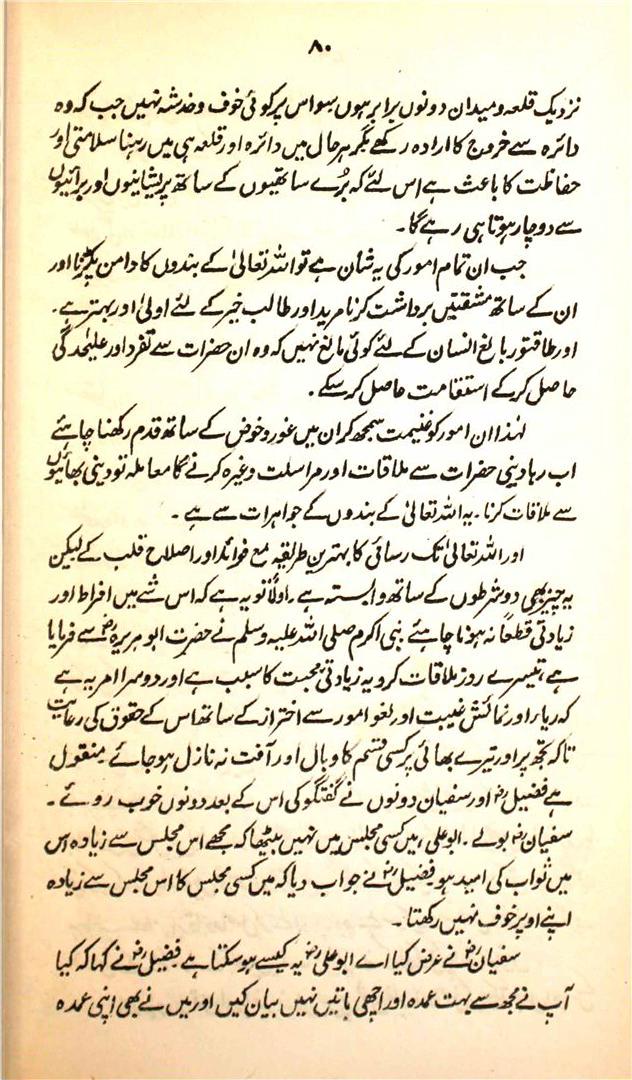 ۸۰
نزدیک قلعہ و میدان دونوں برابر ہوں سو اس پر کوئی خوف و خدشہ نہیں جب کہ وہ
دائرہ سے خروج کا ارادہ رکھے مگر ہر حال میں دائرہ اور قلعہ ہی میں رہنا سلامتی اور
حفاظت کا باعث ہے اس لئے کہ بُرے ساتھیوں کے ساتھ پریشانیوں اور برائیوں
سے دوچار ہوتا ہی رہے گا۔
جب ان تمام امور کی یہ شان ہے تو اللہ تعالیٰ کے بندوں کا دامن پکڑنا اور
ان کے ساتھ مشقتیں برداشت کرنا مرید اور طالب خیر کے لئے اولیٰ اور بہتر ہے۔
اور طاقتور بالغ انسان کے لئے کوئی مانع نہیں کہ وہ ان حضرات سے تفرد اور علیٰحدگی
حاصل کر کے استقامت حاصل کر سکے۔
لہٰذا ان امور کو غنیمت سمجھ کر ان میں غور و خوض کے ساتھ قدم رکھنا چاہئے
اب رہا دینی حضرات سے ملاقات اور مراسلت وغیرہ کرنے کا معاملہ تو دینی بھائیوں
سے ملاقات کرنا۔ یہ اللہ تعالیٰ کے بندوں کے جواہرات سے ہے۔
اور اللہ تعالیٰ تک رسائی کا بہترین طریقہ مع فوائد اور اصلاح قلب کے لیکن
یہ چیز بھی دو شرطوں کے ساتھ وابستہ ہے۔ اولاً تو یہ ہے کہ اس شے میں افراط اور
زیادتی قطعاً نہ ہونا چاہئے نبی اکرم صلی اللہ علیہ وسلم نے حضرت ابو ہریرہؓ سے فرمایا
ہے، تیسرے روز ملاقات کرو یہ زیادتی محبت کا سبب ہے اور دوسرا امر یہ ہے
کہ ریاء اور نمائش غیبت اور لغو امور سے احتراز کے ساتھ اس کے حقوق کی رعایت
تاکہ تجھ پر اور تیرے بھائی پر کسی قسم کا وبال اور آفت نہ نازل ہو جائے۔ منقول
ہے فضیلؓ اور سفیان دونوں نے گفتگو کی اس کے بعد دونوں خوب روئے۔
سفیانؓ بولے۔ ابو علی، میں کسی مجلس میں نہیں بیٹھا کہ مجھے اس مجلس سے زیادہ اس
میں ثواب کی امید ہو۔ فضیلؓ نے جواب دیا کہ میں کسی مجلس کا اس مجلس سے زیادہ
اپنے اوپر خوف نہیں رکھتا۔
سفیانؓ نے عرض کیا اے ابو علیؓ یہ کیسے ہو سکتا ہے فضیلؓ نے کہا کہ کیا
آپ نے مجھ سے بہت عمدہ اور اچھی باتیں نہیں بیان کیں اور میں نے بھی اپنی عمدہ